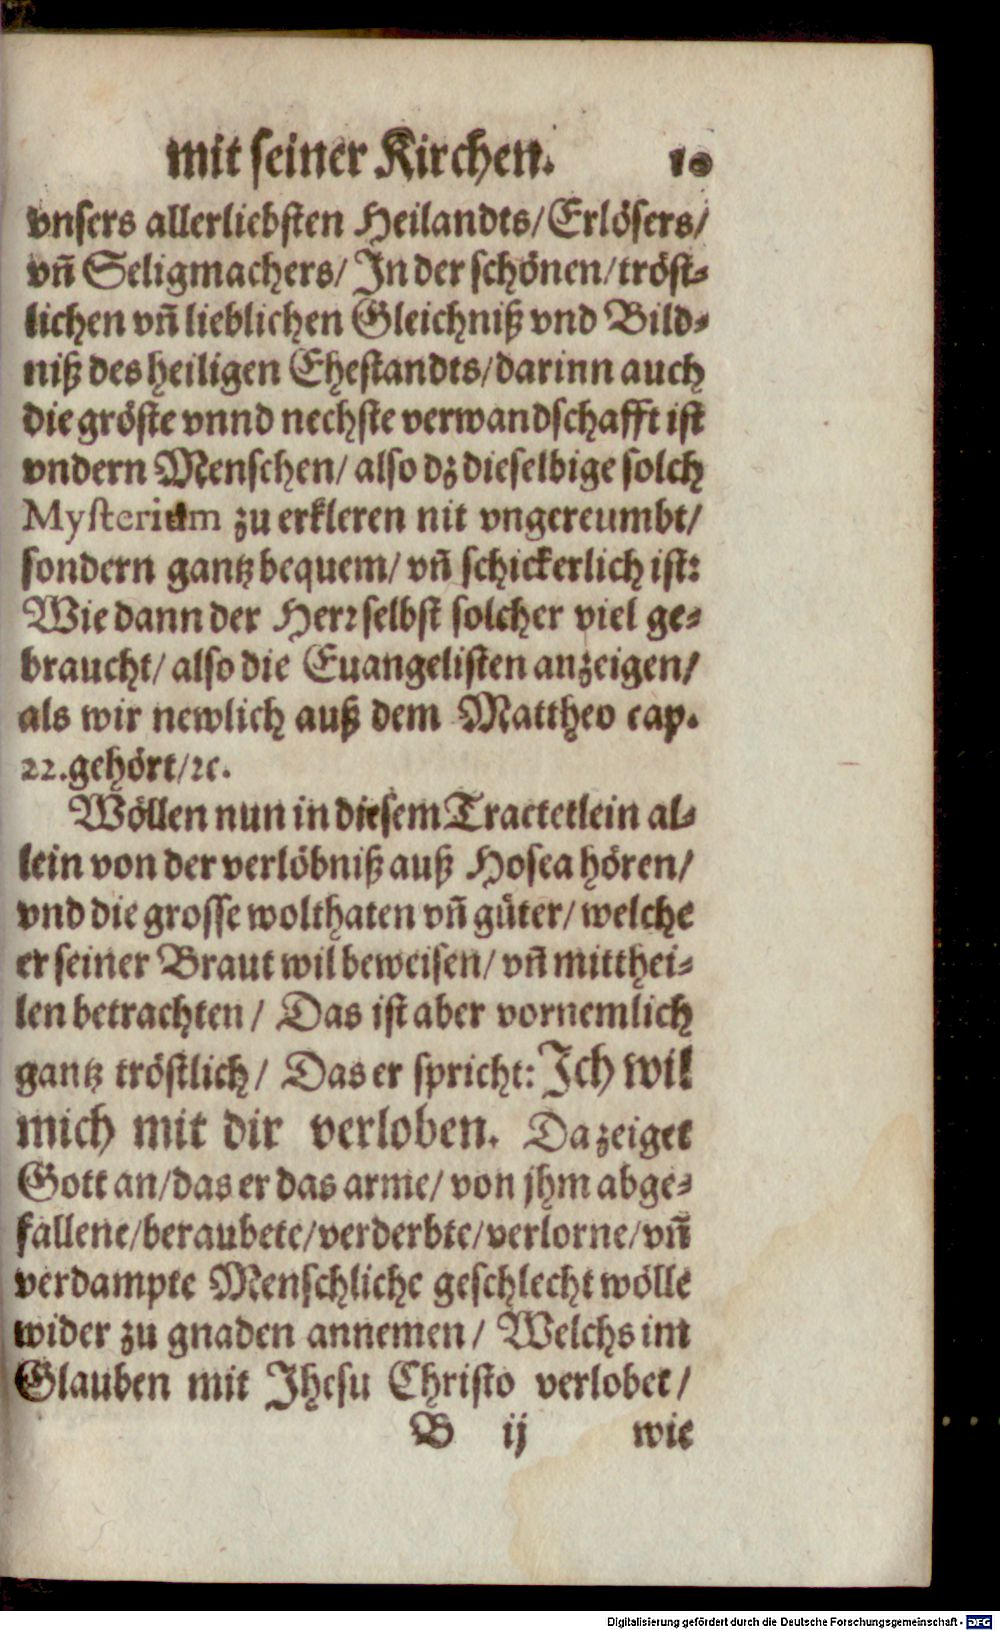 mit seiner Kirchen. 10
vnsers allerliebsten Heilandts/Erlösers/
vñ Seligmachers/ In der schönen/tröst-
lichen vñ lieblichen Gleichniß vnd Bild-
niß des heiligen Ehestandts/darinn auch
die gröste vnnd nechste verwandschafft ist
vndern Menschen/ also dz dieselbige solch
Mysterium zu erkleren nit vngereumbt/
sondern gantz bequem/ vñ schickerlich ist:
Wie dann der Herr selbst solcher viel ge-
braucht/ also die Euangelisten anzeigen/
als wir newlich auß dem Mattheo cap.
22. gehört/ꝛc.
Wöllen nun in diesem Tractetlein al-
lein von der verlöbniß auß Hosea hören/
vnd die grosse wolthaten vñ güter/ welche
er seiner Braut wil beweisen/ vñ mitthei-
len betrachten/ Das ist aber vornemlich
gantz tröstlich/ Das er spricht: Ich wil
mich mit dir verloben. Da zeiget
Gott an/das er das arme/ von jhm abge-
fallene/beraubete/verderbte/verlorne/vñ
verdampte Menschliche geschlecht wölle
wider zu gnaden annemen/ Welchs im
Glauben mit Jhesu Christo verlobet/
B ij wie
Digitalisierung gefördert durch die Deutsche Forschungsgemeinschaft - DFG